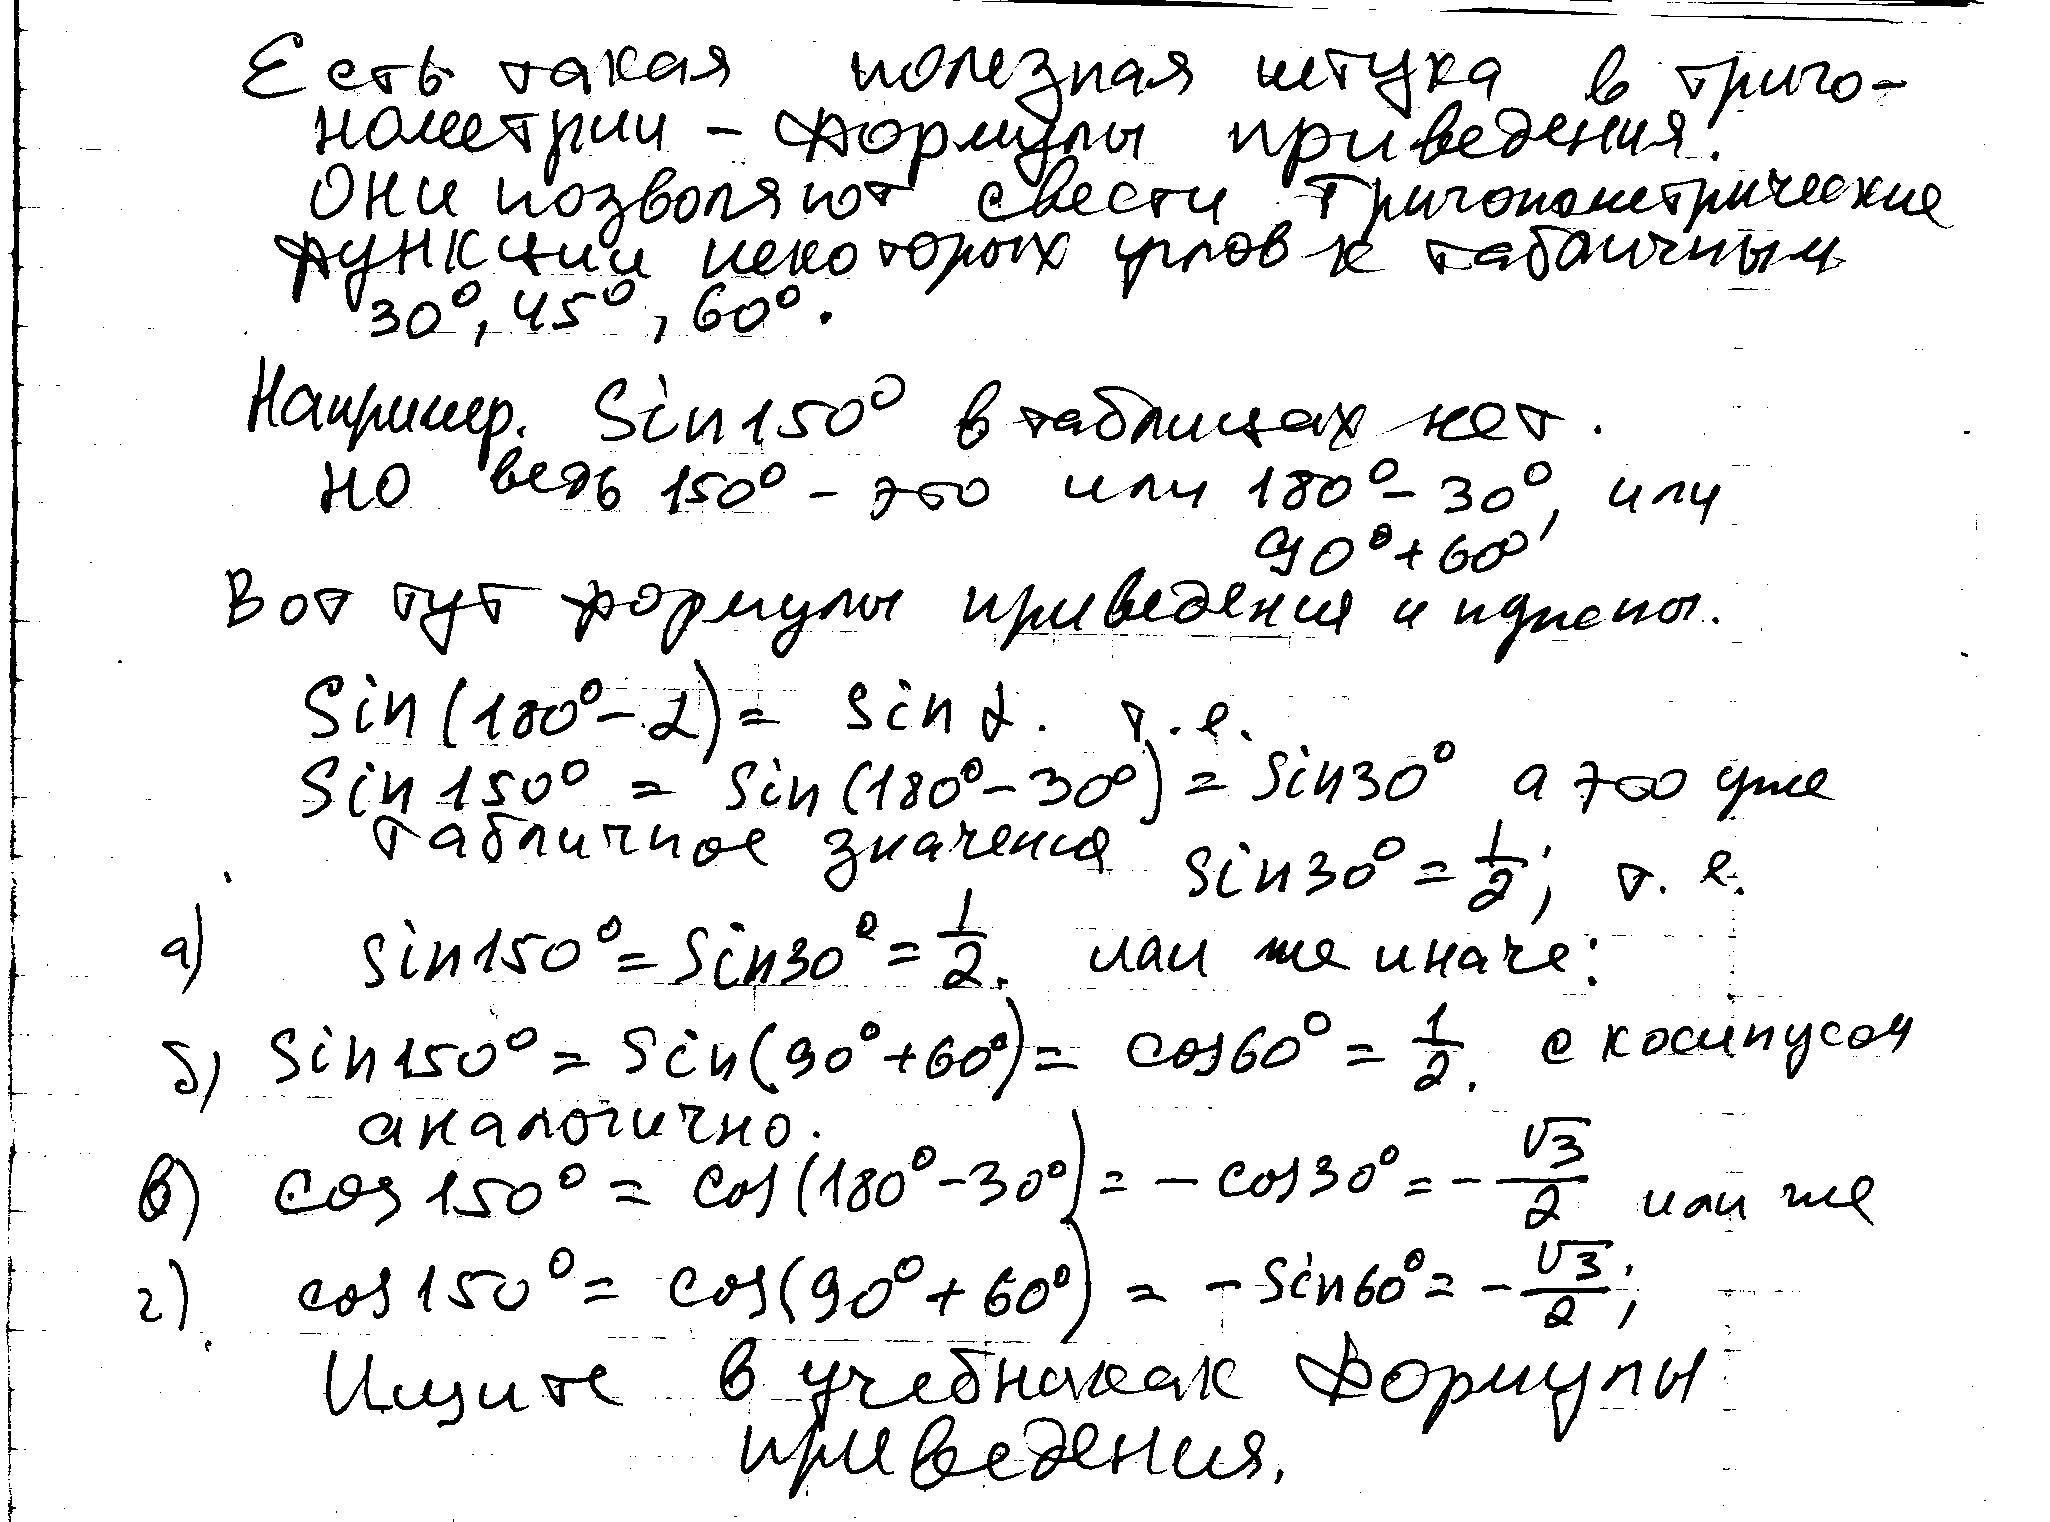 Есть такая полезная штука в триго-
нометрии - формулы приведения.
Они позволяют свести тригонометрические
функции некоторых углов к табличным
30°, 45°, 60°.
Например. Sin150° в таблицах нет.
но ведь 150° - это или 180° - 30°, или
90° + 60°
Вот тут формулы приведения и нужны.
Sin(180° - α) = sin α. т.е.
Sin150° = Sin(180° - 30°) = Sin30° а это уже
табличное значение
Sin30° = 1/2; т.е.
а) sin150° = Sin30° = 1/2. или же иначе:
б) Sin150° = Sin(90° + 60°) = cos60° = 1/2. с косинусом
аналогично.
в) cos150° = cos(180° - 30°) = - cos30° = - √3/2 или же
г) cos150° = cos(90° + 60°) = - Sin60° = - √3/2;
Ищите в учебниках формулы
приведения.